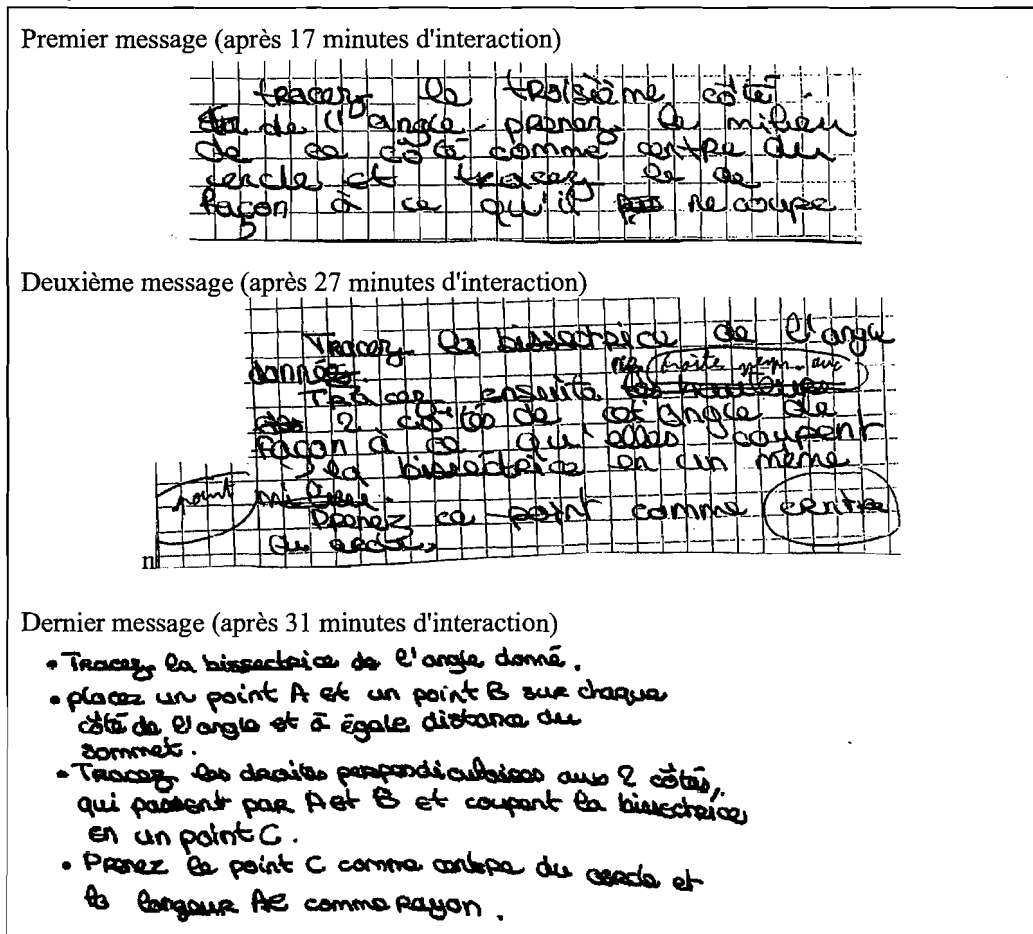 Premier message (après 17 minutes d'interaction)
tracez le troisième côté
de l'angle. prenez le milieu
de ce côté comme centre du
cercle et tracez le de
façon à ce qu'il ne coupe
Deuxième message (après 27 minutes d'interaction)
Tracez la bissectrice de l'angle
donnée.
droites perp. aux
Tracez ensuite les hauteurs
des 2 côtés de cet angle de
façon à ce qu'elles coupent
la bissectrice en un même
point milieu.
Prenez ce point comme centre
du cercle.
n
Dernier message (après 31 minutes d'interaction)
• Tracez la bissectrice de l'angle donné.
• placez un point A et un point B sur chaque
côté de l'angle et à égale distance du
sommet.
• Tracez les droites perpendiculaires aux 2 côtés,
qui passent par A et B et coupent la bissectrice
en un point C.
• Prenez le point C comme centre du cercle et
la longueur AC comme rayon.